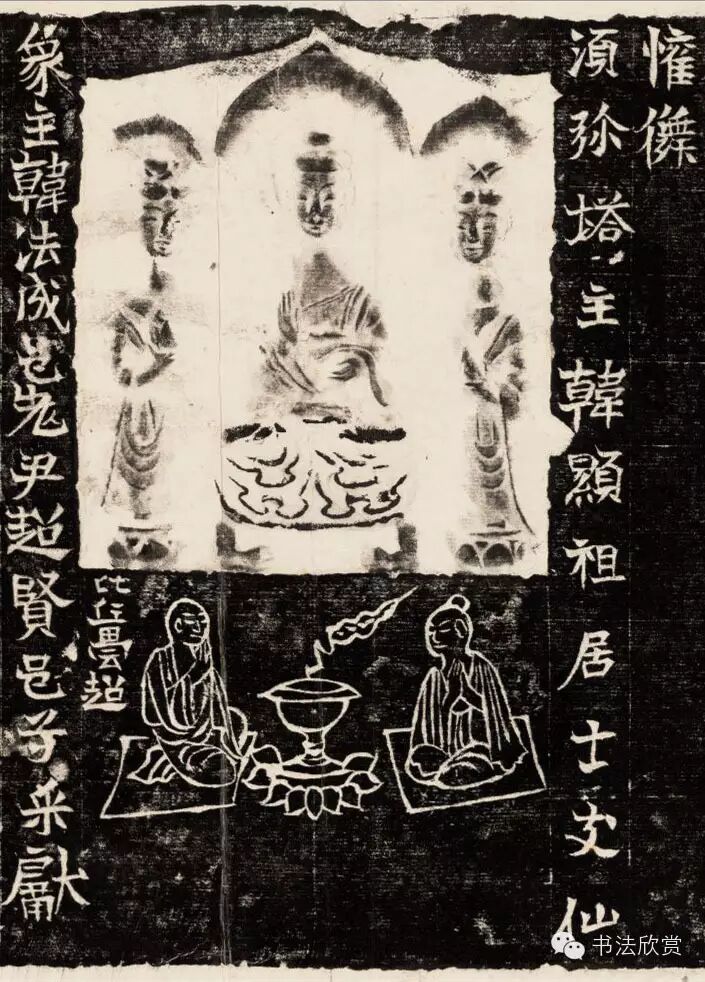 慛㒒
湏弥塔主韓顯祖居士支仙
比丘曇超
象主韓法成邑老尹超賢邑子朱獻
书法欣赏